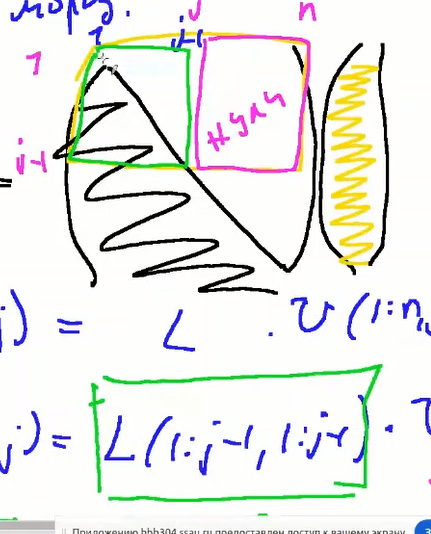 1 j-1 j n
1
нули
j-1
=
j) = L · U(1:n,
j) = L(1:j-1, 1:j-1) ·
Приложению bbb304.ssau.ru предоставлен доступ к вашему экрану.